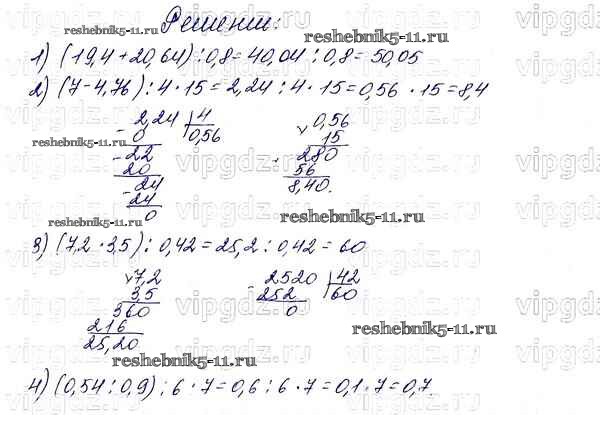 Решение:
reshebnik5-11.ru
1) (19,4+20,64):0,8=40,04:0,8=50,05
2) (7-4,76):4·15=2,24:4·15=0,56·15=8,4
2,24 | 4
- 0 0,56
reshebnik5-11.ru
- 22
20
- 24
24
0
0,56
× 15
280
+ 56
8,40.
reshebnik5-11.ru
reshebnik5-11.ru
3) (7,2·3,5):0,42=25,2:0,42=60
7,2
× 3,5
360
216
25,20
- 2520 | 42
252 60
0
reshebnik5-11.ru
reshebnik5-11.ru
4) (0,54:0,9):6·7=0,6:6·7=0,1·7=0,7.
vipgdz.ru